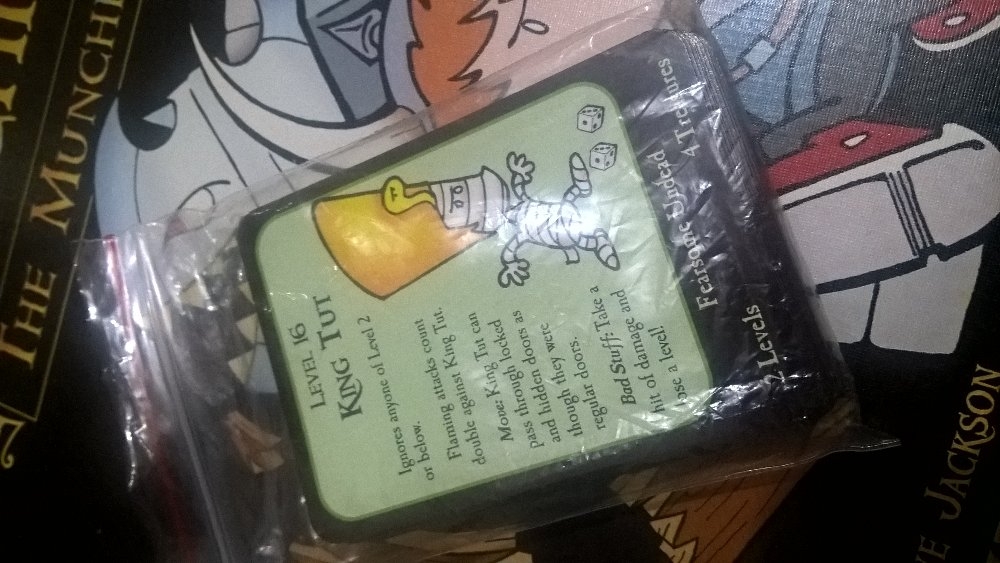 THE MUNCHK
LEVEL 16
KING TUT
Ignores anyone of Level 2
or below.
Flaming attacks count
double against King Tut.
Move: King Tut can
pass through locked
and hidden doors as
though they were
regular doors.
Bad Stuff: Take a
hit of damage and
ose a level!
Fearsome Undead 4 Treasures
2 Levels
VE JACKSON